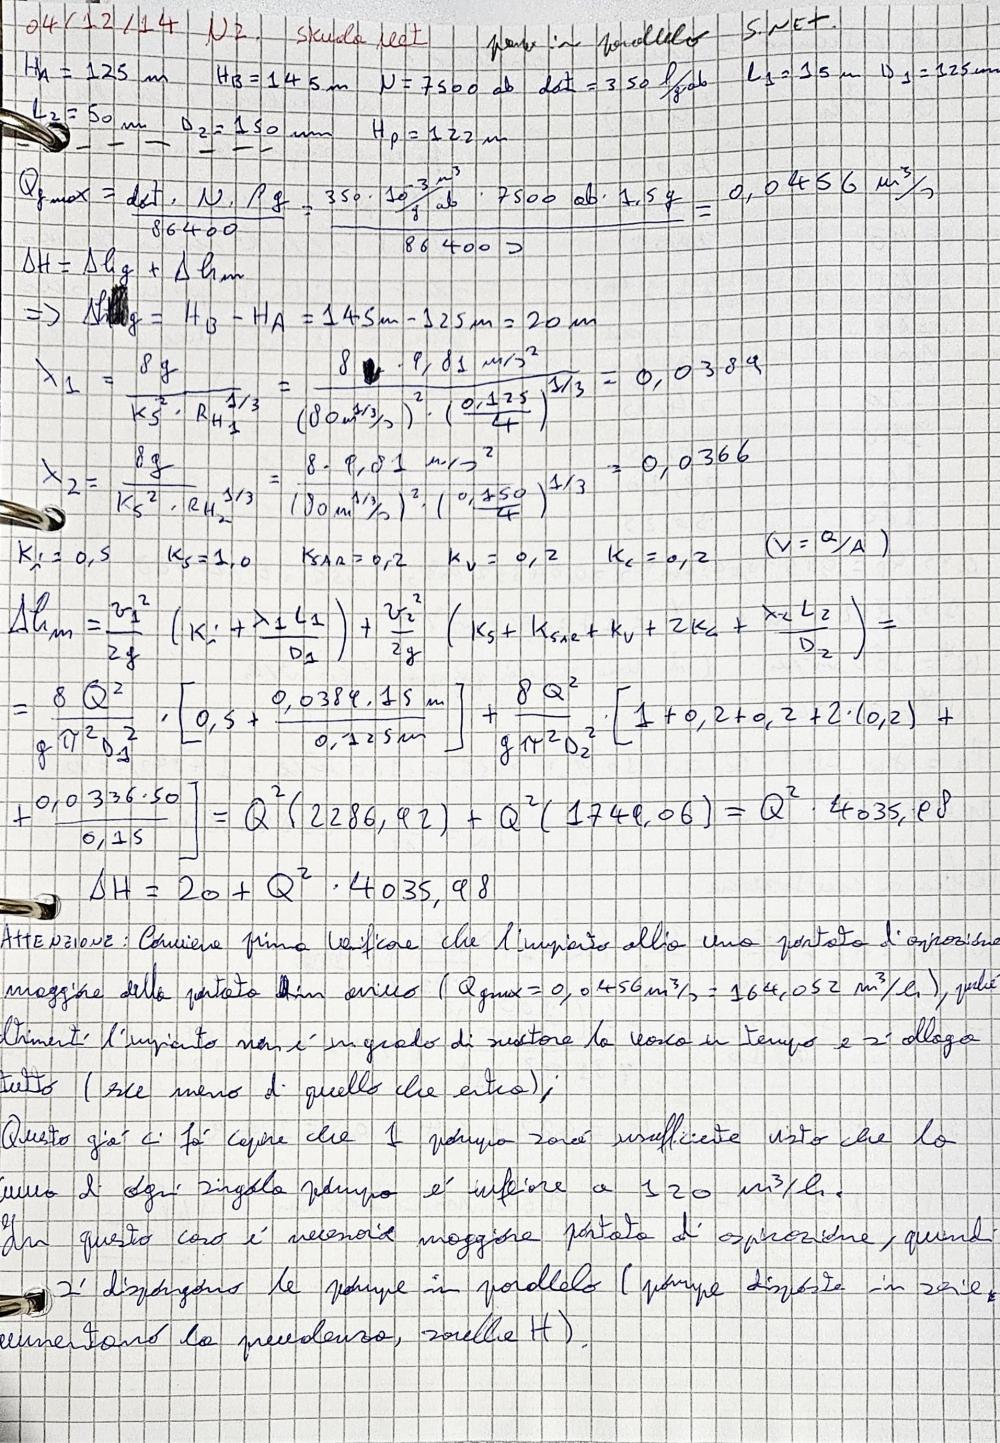 04/12/14 N2. skuola net pompe in parallelo S.NET.
HA = 125 m HB = 145 m N = 7500 ab dot = 350 l/g ab L1 = 15 m D1 = 125 mm
L2 = 50 m D2 = 150 mm Hp = 122 m
Qgmax = dot · N · Pg / 86400 = 350 · 10^-3 m³/g ab · 7500 ab · 1,5 g / 86400 s = 0,0456 m³/s
ΔH = Δhg + Δhm
=> Δhg = HB - HA = 145m - 125m = 20 m
λ1 = 8g / (Ks² · RH1^1/3) = 8 · 9,81 m/s² / ((80 m^1/3/s)² · (0,125/4)^1/3) = 0,0389
λ2 = 8g / (Ks² · RH2^1/3) = 8 · 9,81 m/s² / ((80 m^1/3/s)² · (0,150/4)^1/3) = 0,0366
Ki = 0,5 Ks = 1,0 KSAR = 0,2 Kv = 0,2 Kc = 0,2 (V = Q/A)
Δhm = v1²/2g (Ki + λ1L1/D1) + v2²/2g (Ks + KSAR + Kv + 2Kc + λ2L2/D2) =
= 8Q²/(gπ²D1²) · [0,5 + 0,0389·15 m/0,125m] + 8Q²/(gπ²D2²) · [1+0,2+0,2+2·(0,2) +
+ 0,0336·50/0,15] = Q²(2286,92) + Q²(1749,06) = Q² · 4035,98
ΔH = 20 + Q² · 4035,98
ATTENZIONE: Conviene prima verificare che l'impianto abbia una portata d'aspirazione
maggiore della portata in arrivo (Qgmax = 0,0456m³/s = 164,052 m³/h), poiché
altrimenti l'impianto non è in grado di svuotare la vasca in tempo e si allaga
tutto (esce meno di quello che entra);
Questo già ci fà capire che 1 pompa sarà insufficiente visto che la
curva di ogni singola pompa è inferiore a 120 m³/h.
In questo caso è necessaria maggiore portata di aspirazione, quindi
si dispongono le pompe in parallelo (pompe disposte in serie
aumentano la prevalenza, sarebbe H).